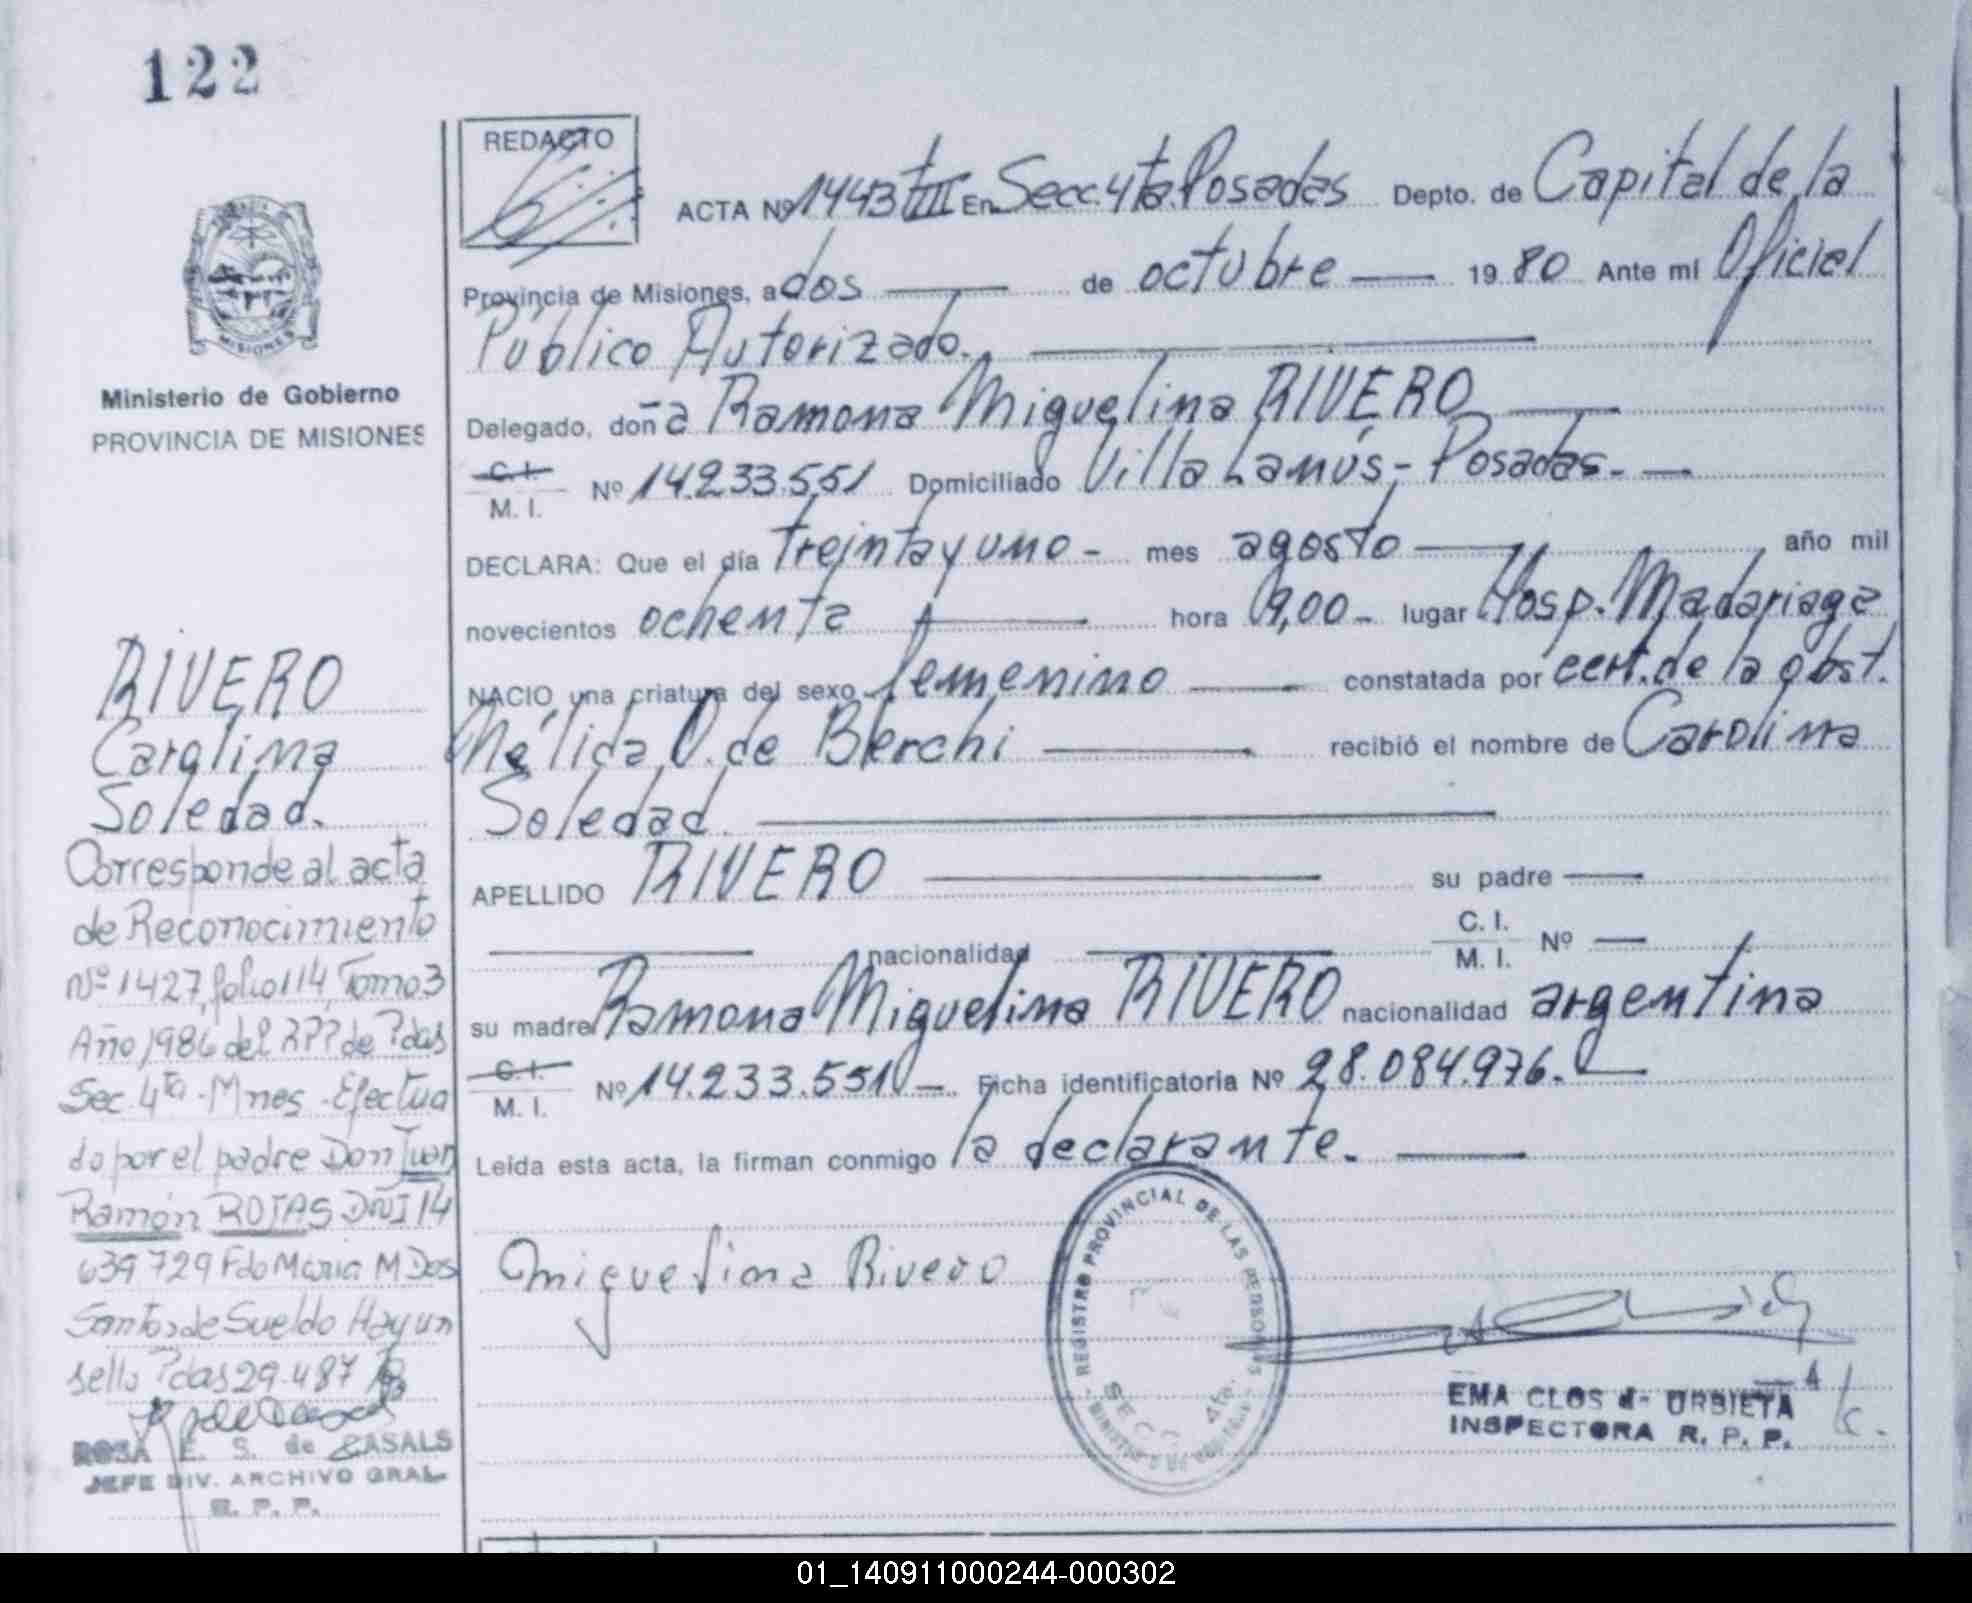 122
MISIONES
Ministerio de Gobierno
PROVINCIA DE MISIONES
RIVERO
Carolina
Soledad.
Corresponde al acta
de Reconocimiento
Nº 1427, folio 114, Tomo 3
Año 1986 del RPP de Pdas
Sec. 4ta - Mnes - Efectua
do por el padre Don Juan
Ramón ROJAS DNI 14
639729 Fdo Maria M Dos
Santos de Sueldo Hay un
sello Pdas 29-4-87
ROSA E. S. de CASALS
JEFE DIV. ARCHIVO GRAL
R. P. P.
REDACTO
ACTA Nº 1443 tIII En Secc. 4ta. Posadas Depto. de Capital de la
Provincia de Misiones, a dos de octubre 19 80 Ante mi Oficial
Público Autorizado.
Delegado, doña Ramona Miguelina RIVERO
C. I.
M. I. Nº 14.233.551 Domiciliado Villa Lanús - Posadas. -
DECLARA: Que el día treinta y uno - mes agosto año mil
novecientos ochenta hora 9,00 - lugar Hosp. Madariaga
NACIO una criatura del sexo femenino constatada por cert. de la obst.
Nélida O. de Berchi recibió el nombre de Carolina
Soledad.
APELLIDO RIVERO su padre
nacionalidad C. I.
M. I. Nº
su madre Ramona Miguelina RIVERO nacionalidad argentina
C. I.
M. I. Nº 14.233.551 - Ficha identificatoria Nº 28.084.976.
Leída esta acta, la firman conmigo la declarante.
Miguelina Rivero
REGISTRO PROVINCIAL DE LAS PERSONAS
SECC. 4ta.
EMA CLOS de URBIETA
INSPECTORA R. P. P.
01_140911000244-000302